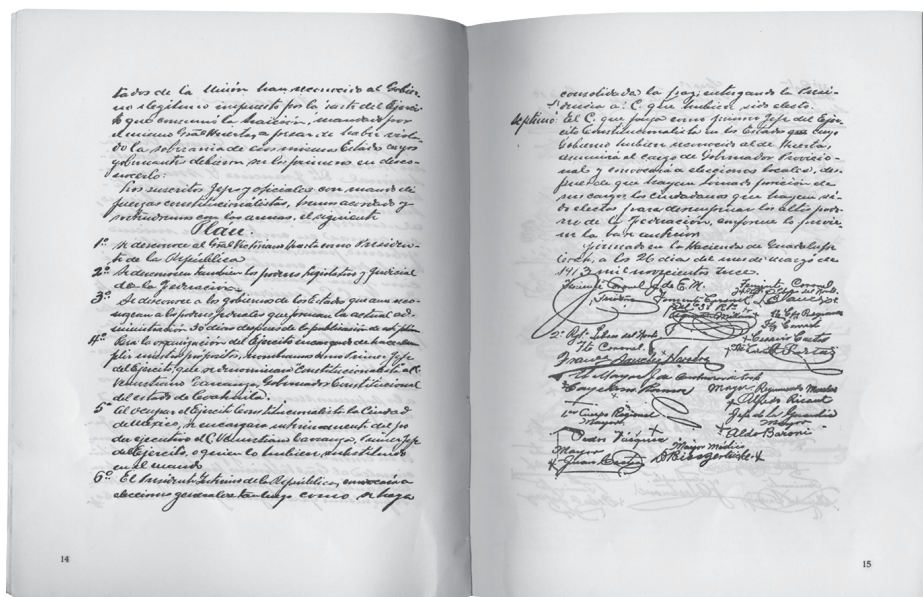 tados de la Unión han reconocido al Gobier-
no ilegítimo impuesto por la parte del Ejérci-
to que consumó la traición, mandado por
el mismo Gral Huerta, a pesar de haber viola-
do la soberanía de esos mismos Estados, cuyos
gobernantes debieron ser los primeros en desco-
nocerlo:
Los suscritos, Jefes y oficiales con mando de
fuerzas constitucionalistas, hemos acordado y
sostendremos con las armas, el siguiente
Plan.
1º Se desconoce al Gral Victoriano Huerta como Presiden-
te de la República
2º Se desconocen también los poderes Legislativo y Judicial
de la Federación.
3º Se desconoce a los gobiernos de los Estados que aun reco-
nozcan a los poderes federales que forman la actual ad-
ministración 30 días después de la publicación de este plan
4º Para la organización del Ejército encargado de hacer cum-
plir nuestros propósitos, nombramos como Primer Jefe
del Ejército, que se denominará Constitucionalista, al C.
Venustiano Carranza, Gobernador Constitucional
del estado de Coahuila.
5º Al ocupar el Ejército Constitucionalista la Ciudad
de México, se encargará interinamente del po-
der ejecutivo el C. Venustiano Carranza, Primer Jefe
del Ejército, o quien lo hubiere substituido
en el mando
6º El Presidente Interino de la República, convocará a
elecciones generales tan luego como se haya
14
consolidado la paz, entregando la Presi-
dencia al C. que hubiere sido electo.
Septimo: El C. que funja como primer Jefe del Ejér-
cito Constitucionalista en los Estados que cuyo
Gobierno hubiere reconocido al de Huerta,
asumirá el cargo de Gobernador Provisio-
nal y convocará a elecciones locales, des-
pués de que hayan tomado posesión de
sus cargos, los ciudadanos que hayan si-
do electos para desempeñar los altos pode-
res de la Federación, conforme lo previe-
ne la base anterior.
Firmado en la Hacienda de Guadalupe
Coah., a los 26 días del mes de Marzo de
1913 mil novecientos trece.
Teniente Coronel J. de E. M. Teniente Coronel
Teniente Coronel
2º Regt. Libres del Norte
Tte Coronel Cesario Castro
Mayor
Cayetano Ramos Mayor
Alfredo Ricaut
1er Cuerpo Regional Jefe de la
Mayor Mayor
Pedro Vázquez Aldo Baroni
Mayor Mayor Médico
Juan Castro
15